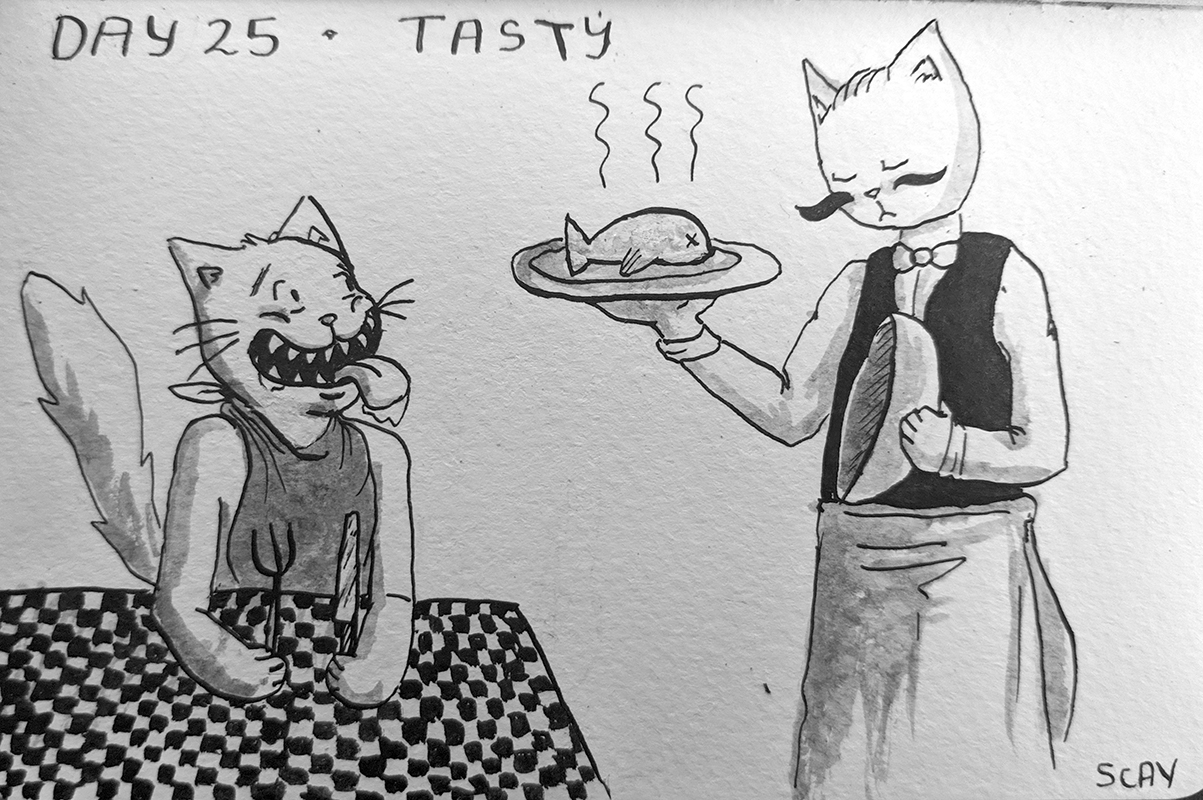 DAY 25 · TASTY
SCAY